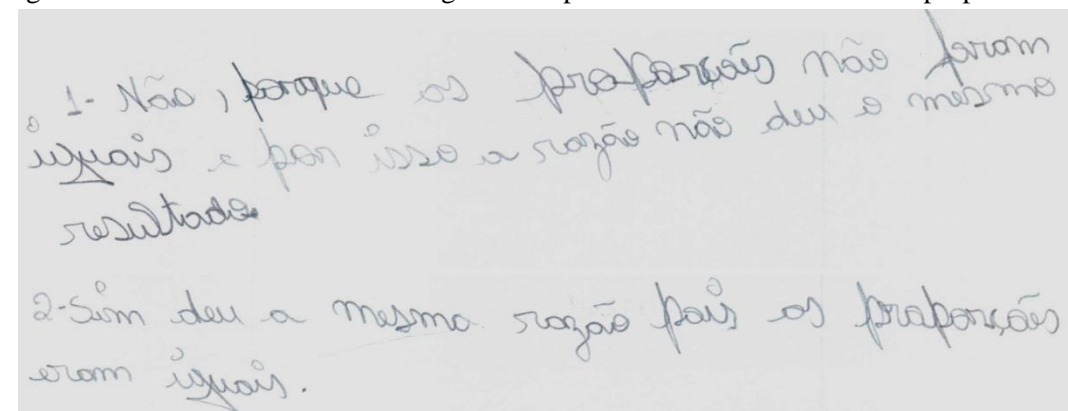 1- Não, porque as proporções não foram
iguais e por isso a razão não deu o mesmo
resultado
2-Sim deu a mesma razão pois as proporções
eram iguais.